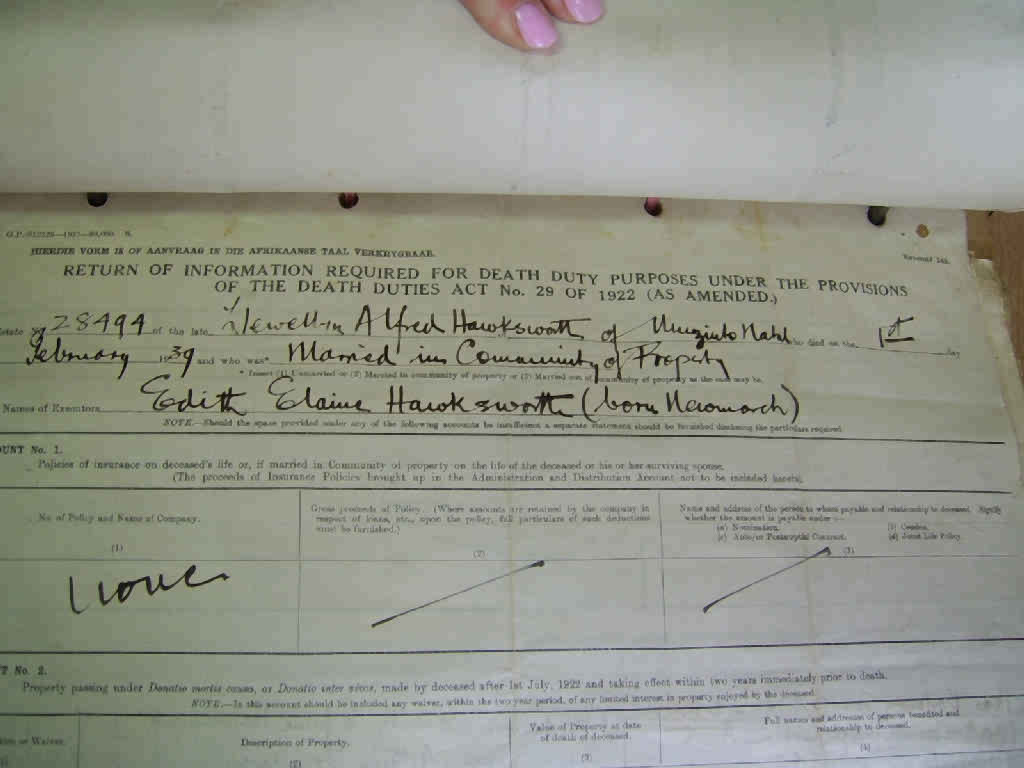 HIERDIE VORM IS OF AANVRAAG IN DIE AFRIKAANSE TAAL VERKRYGBAAR.
RETURN OF INFORMATION REQUIRED FOR DEATH DUTY PURPOSES UNDER THE PROVISIONS
OF THE DEATH DUTIES ACT No. 29 OF 1922 (AS AMENDED.)
state No. 28494 of the late Llewellyn Alfred Hawksworth of Umzinto Natal who died on the 1st day
of February 1939 and who was* Married in Community of Property
* Insert (1) Unmarried or (2) Married in community of property or (3) Married out of community of property as the case may be.
Names of Executors Edith Elaine Hawksworth (born Newmarch)
NOTE.—Should the space provided under any of the following accounts be insufficient a separate statement should be furnished disclosing the particulars required.
OUNT No. 1.
Policies of insurance on deceased's life or, if married in Community of property on the life of the deceased or his or her surviving spouse.
(The proceeds of Insurance Policies brought up in the Administration and Distribution Account not to be included herein)
No. of Policy and Name of Company.
(1)
Gross proceeds of Policy. (Where amounts are retained by the company in
respect of loans, etc., upon the policy, full particulars of such deductions
must be furnished.)
(2)
Name and address of the person to whom payable and relationship to deceased. Signify
whether the amount is payable under:—
(a) Nomination. (b) Cession.
(c) Ante/or Postnuptial Contract. (d) Joint Life Policy.
(3)
none
T No. 2.
Property passing under Donatio mortis causa, or Donatio inter vivos, made by deceased after 1st July, 1922 and taking effect within two years immediately prior to death.
NOTE.—In this account should be included any waiver, within the two year period, of any limited interest in property enjoyed by the deceased.
tion or Waiver.
Description of Property.
(2)
Value of Property at date
of death of deceased.
(3)
Full names and addresses of persons benefited and
relationship to deceased.
(4)